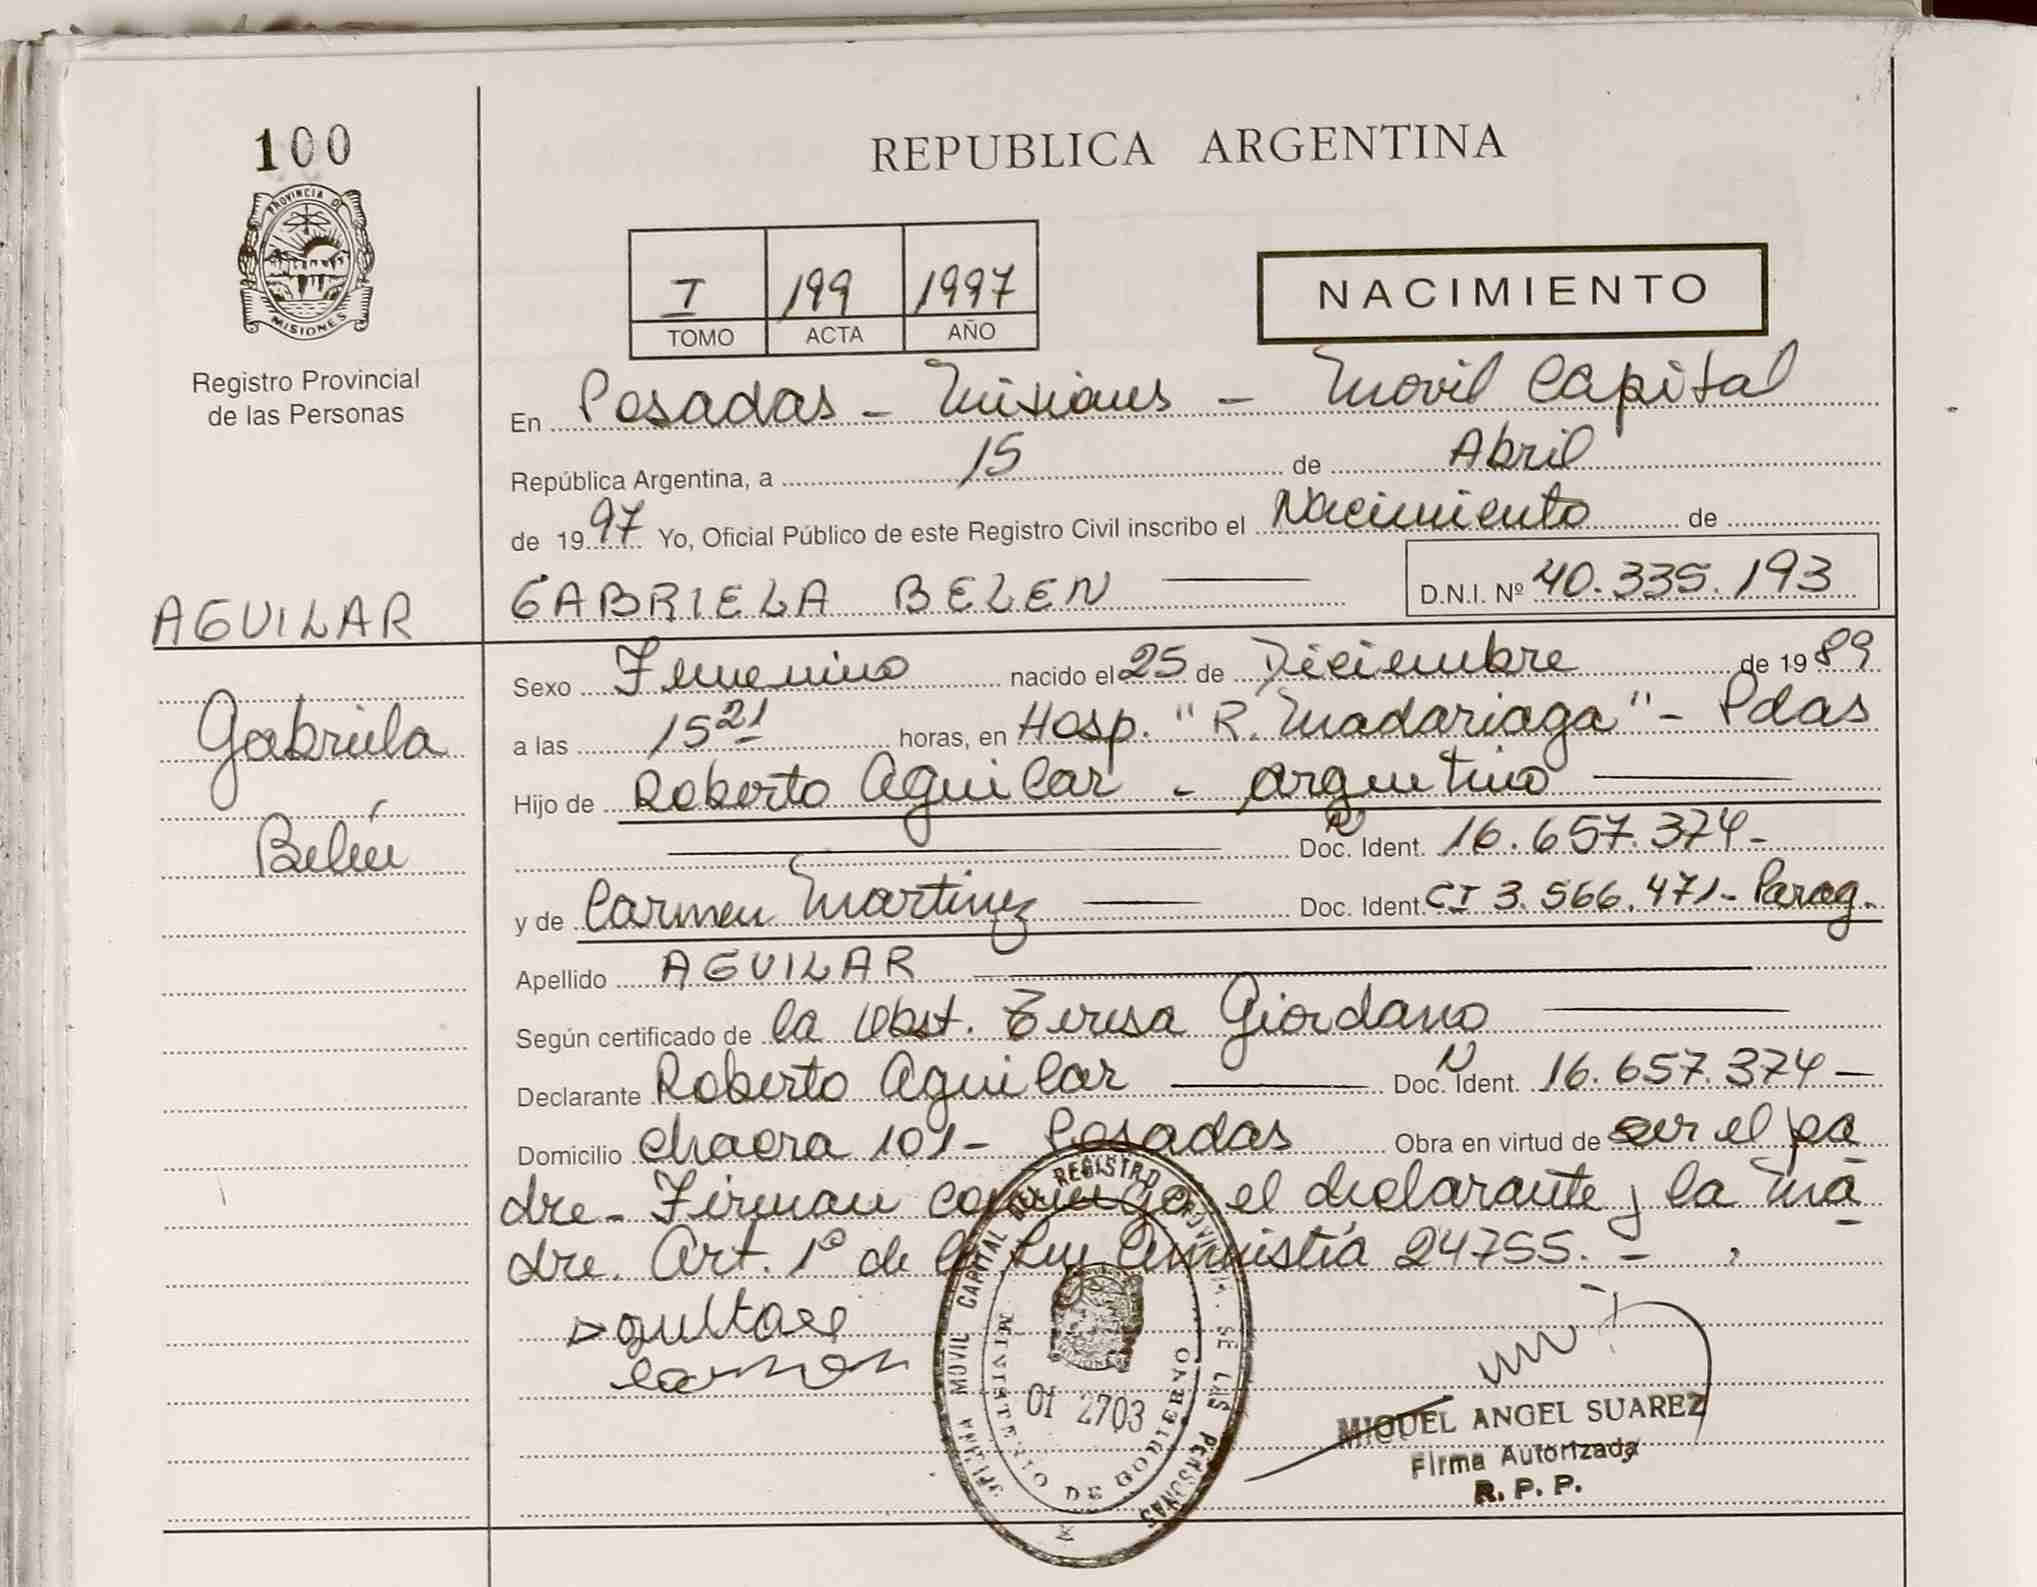 100
PROVINCIA DE
MISIONES
Registro Provincial
de las Personas
REPUBLICA ARGENTINA
I 199 1997
TOMO ACTA AÑO
NACIMIENTO
En Posadas - Misiones - Movil Capital
República Argentina, a 15 de Abril
de 1997 Yo, Oficial Público de este Registro Civil inscribo el Nacimiento de
GABRIELA BELEN D.N.I. Nº 40.335.193
AGUILAR
Gabriela
Belén
Sexo Femenino nacido el 25 de Diciembre de 1989
a las 15 21 horas, en Hosp. "R. Madariaga" - Pdas
Hijo de Roberto Aguilar - argentino
Doc. Ident. 16.657.374-
y de Carmen Martinez Doc. Ident. CI 3.566.471- Parag.
Apellido AGUILAR
Según certificado de la Obst. Teresa Giordano
Declarante Roberto Aguilar Doc. Ident. 16.657.374-
Domicilio Chacra 101- Posadas Obra en virtud de ser el pa
dre- Firman conmigo el declarante y la ma
dre. Art. 1º de la Ley Amnistía 24755. -
carmen
OFICINA MOVIL CAPITAL DEL REGISTRO PROVINCIAL DE LAS PERSONAS
MINISTERIO DE GOBIERNO
01 2703
MIGUEL ANGEL SUAREZ
Firma Autorizada
R. P. P.